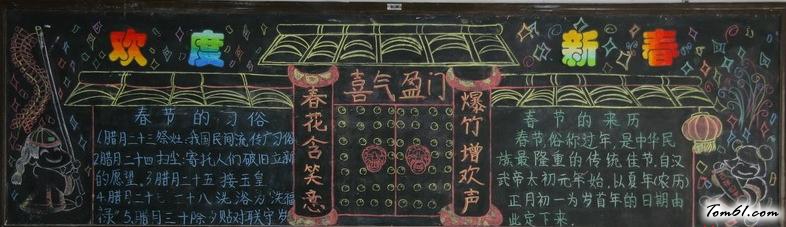 欢度
新春
喜气盈门
春花含笑意
爆竹增欢声
春节的习俗
1.腊月二十三祭灶,我国民间流传广习俗
2腊月二十四扫尘:寄托人们破旧立新
的愿望.3腊月二十五接玉皇
4.腊月二十七二十八洗浴为"洗福
禄"5.腊月三十除夕贴对联守岁
春节的来历
春节,俗称过年,是中华民
族最隆重的传统佳节,自汉
武帝太初元年始,以夏年(农历)
正月初一为岁首年的日期由
此定下来.
Tom61.com